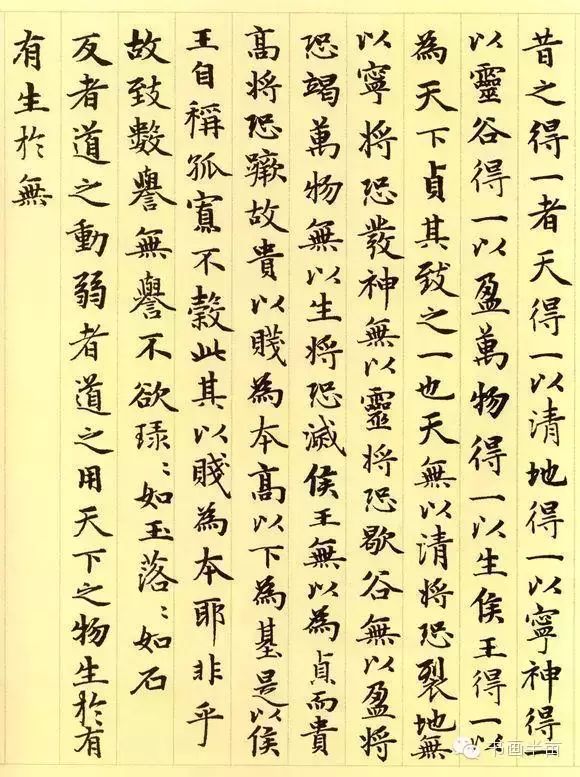 昔之得一者天得一以清地得一以寧神得一
以靈谷得一以盈萬物得一以生侯王得一以
為天下貞其致之一也天無以清將恐裂地無
以寧將恐發神無以靈將恐歇谷無以盈將
恐竭萬物無以生將恐滅侯王無以為貞而貴
高將恐蹶故貴以賤為本高以下為基是以侯
王自稱孤寡不穀此其以賤為本耶非乎
故致數譽無譽不欲琭:如玉落:如石
反者道之動弱者道之用天下之物生於有
有生於無
书画半亩